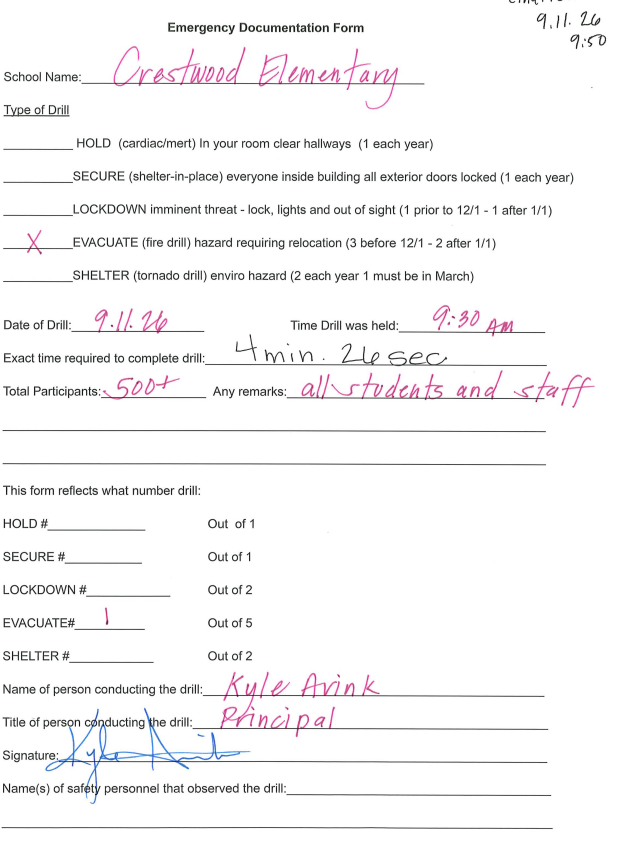 9.11.26
9:50
Emergency Documentation Form
School Name: Crestwood Elementary
Type of Drill
HOLD (cardiac/mert) In your room clear hallways (1 each year)
SECURE (shelter-in-place) everyone inside building all exterior doors locked (1 each year)
LOCKDOWN imminent threat - lock, lights and out of sight (1 prior to 12/1 - 1 after 1/1)
X EVACUATE (fire drill) hazard requiring relocation (3 before 12/1 - 2 after 1/1)
SHELTER (tornado drill) enviro hazard (2 each year 1 must be in March)
Date of Drill: 9.11.26 Time Drill was held: 9:30 AM
Exact time required to complete drill: 4 min. 26 sec
Total Participants: 500+ Any remarks: all students and staff
This form reflects what number drill:
HOLD # Out of 1
SECURE # Out of 1
LOCKDOWN # Out of 2
EVACUATE# 1 Out of 5
SHELTER # Out of 2
Name of person conducting the drill: Kyle Avink
Title of person conducting the drill: Principal
Signature: Kyle Avink
Name(s) of safety personnel that observed the drill: